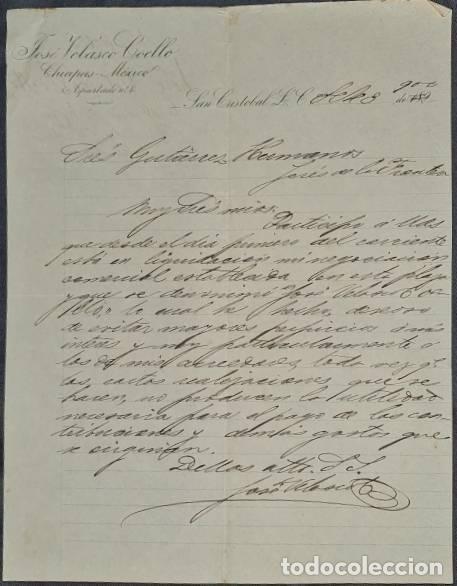 José Velasco Coello
Chiapas - México
Apartado nº 1.
San Cristobal L. C. Octe 8 de 190
Sres Gutierrez Hermanos
Jeres de la Frontera
Muy Sres mios:
Participo á Uds
que desde el dia primero del corriente
está en liquidación mi negociacion
comercial establecida en esta plaza
y que se denominó "José Velasco Coe-
llo," lo cual he hecho, deseoso
de evitar mayores perjuicios á mis
interes y muy particularmente á
los de mis acreedores, toda vez q.
las cortas realizaciones que se
hacen, no producen la utilidad
necesaria para el pago de las con-
tribuciones y demás gastos que
se originan.
De Uds atto. S. S.
José Velasco C
todocoleccion
todocoleccion.net